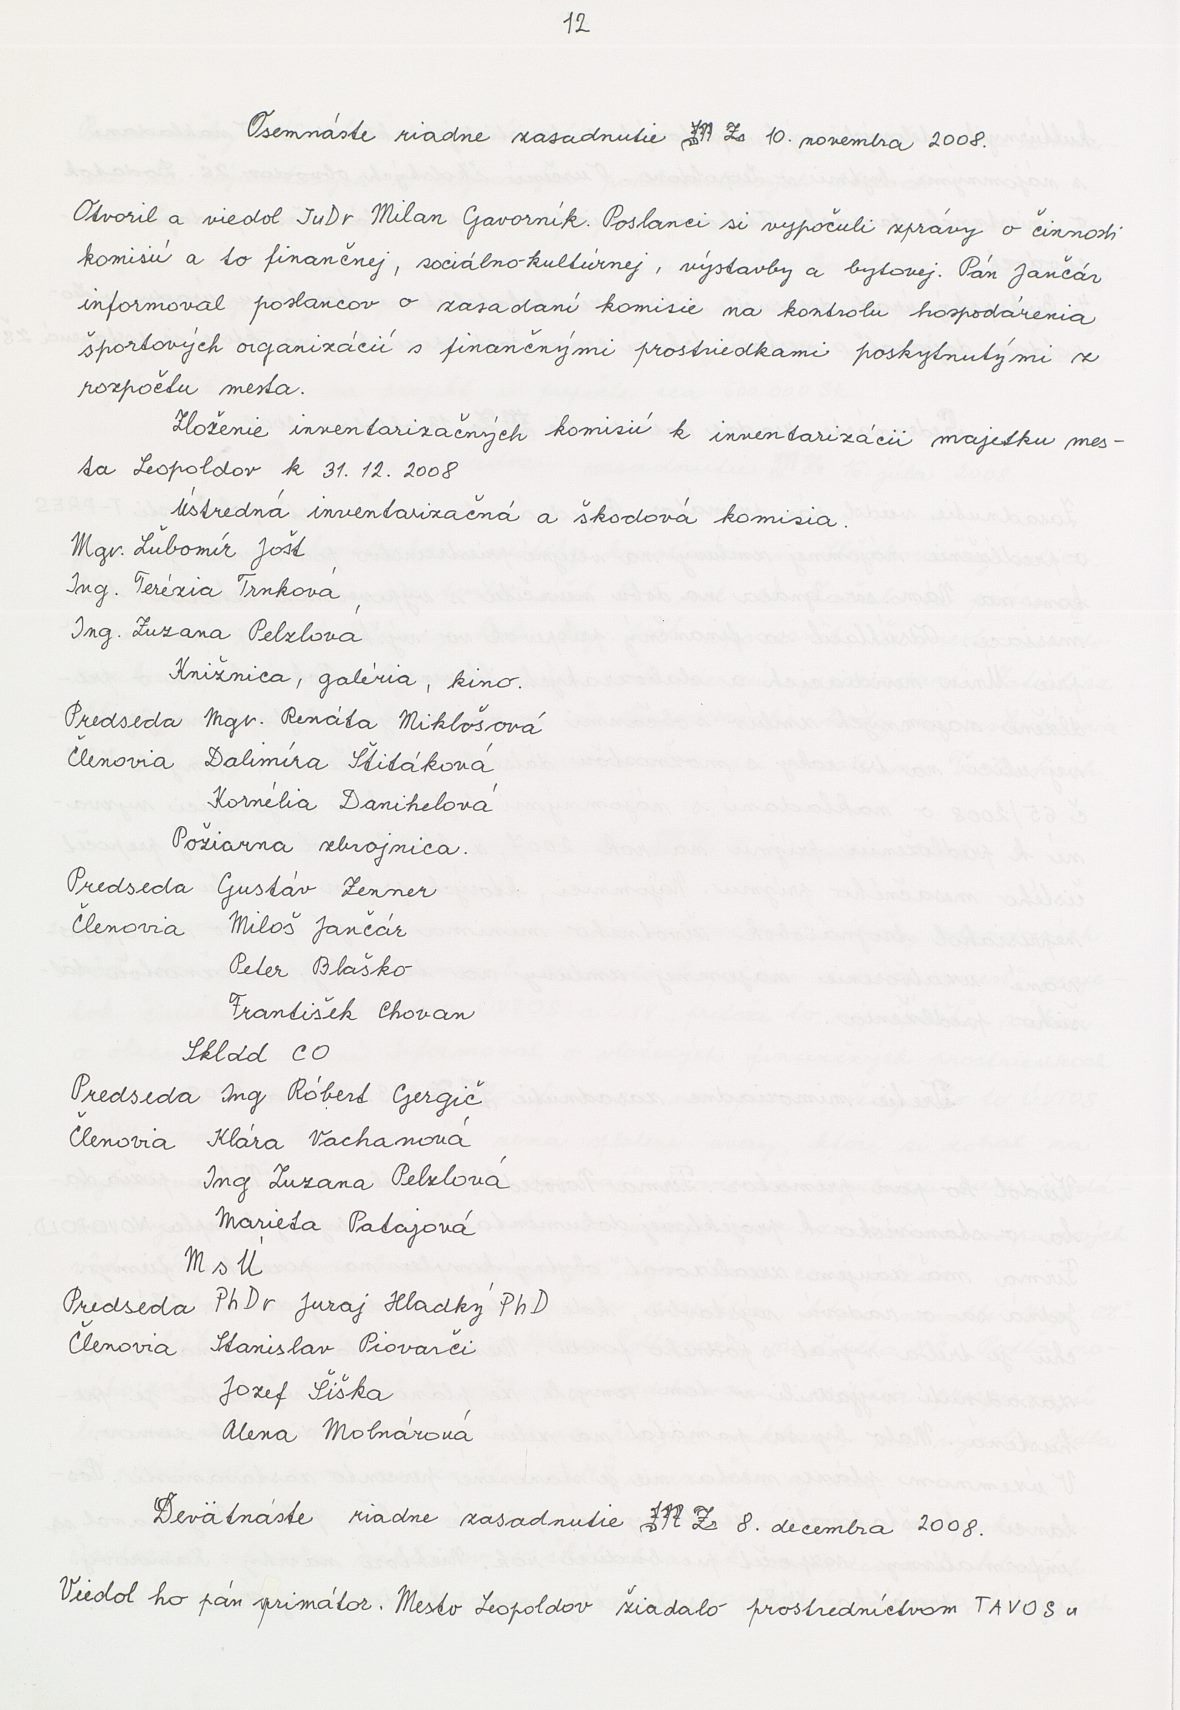 12
Osemnáste riadne zasadnutie MZ 10. novembra 2008.
Otvoril a viedol JuDr Milan Gavorník. Poslanci si vypočuli zprávy o činnosti
komisií a to finančnej, sociálno-kultúrnej, výstavby a bytovej. Pán Jančár
informoval poslancov o zasadaní komisie na kontrolu hospodárenia
športových organizácií s finančnými prostriedkami poskytnutými z
rozpočtu mesta.
Zloženie inventarizačných komisií k inventarizácii majetku mes-
ta Leopoldov k 31. 12. 2008
Ústredná inventarizačná a škodová komisia.
Mgr. Ľubomír Jošt
Ing. Terézia Trnková
Ing. Zuzana Pelzlová
Knižnica, galéria, kino.
Predseda Mgr. Renáta Miklošová
Členovia Dalimíra Štitáková
Kornélia Danihelová
Požiarna zbrojnica.
Predseda Gustáv Zenner
Členovia Miloš Jančár
Peter Blaško
František Chovan
Skldd CO
Predseda Ing Róbert Gergič
Členovia Klára Vachanová
Ing Zuzana Pelzlová
Marieta Patajová
MsÚ
Predseda PhDr Juraj Hladký PhD
Členovia Stanislav Piovarči
Jozef Šiška
Alena Molnárová
Devätnáste riadne zasadnutie MZ 8. decembra 2008.
Viedol ho pán primátor. Mesto Leopoldov žiadalo prostredníctvom TAVOS u